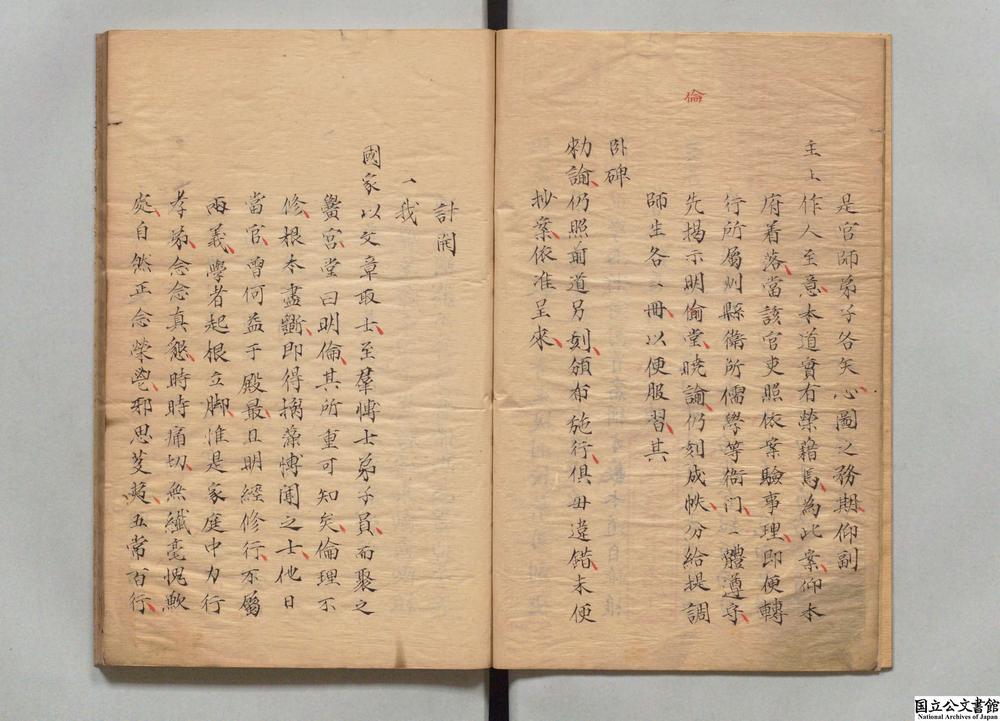 倫
是官師弟子各矢心圖之務期仰副
主上作人至意本道實有榮藉焉為此案仰本
府着落當該官吏照依案驗事理即便轉
行所屬州縣衛所儒學等衙門一體遵守
先揭示明倫堂曉諭仍刻成帙分給提調
師生各一冊以便服習其
臥碑
勑諭仍照前道另刻頒布施行俱毋違錯未便
抄案依准呈來
計開
一我
國家以文章取士至羣博士弟子員而聚之
黌宮堂曰明倫其所重可知矣倫理不
修根本盡斵即得摛藻博聞之士他日
當官曾何益于殿最且明經修行不屬
兩義學者起根立脚准是家庭中力行
孝弟念念真懇時時痛切無纖毫愧歉
處自然正念榮鬯邪思芟
五常百行
国立公文書館
National Archives of Japan